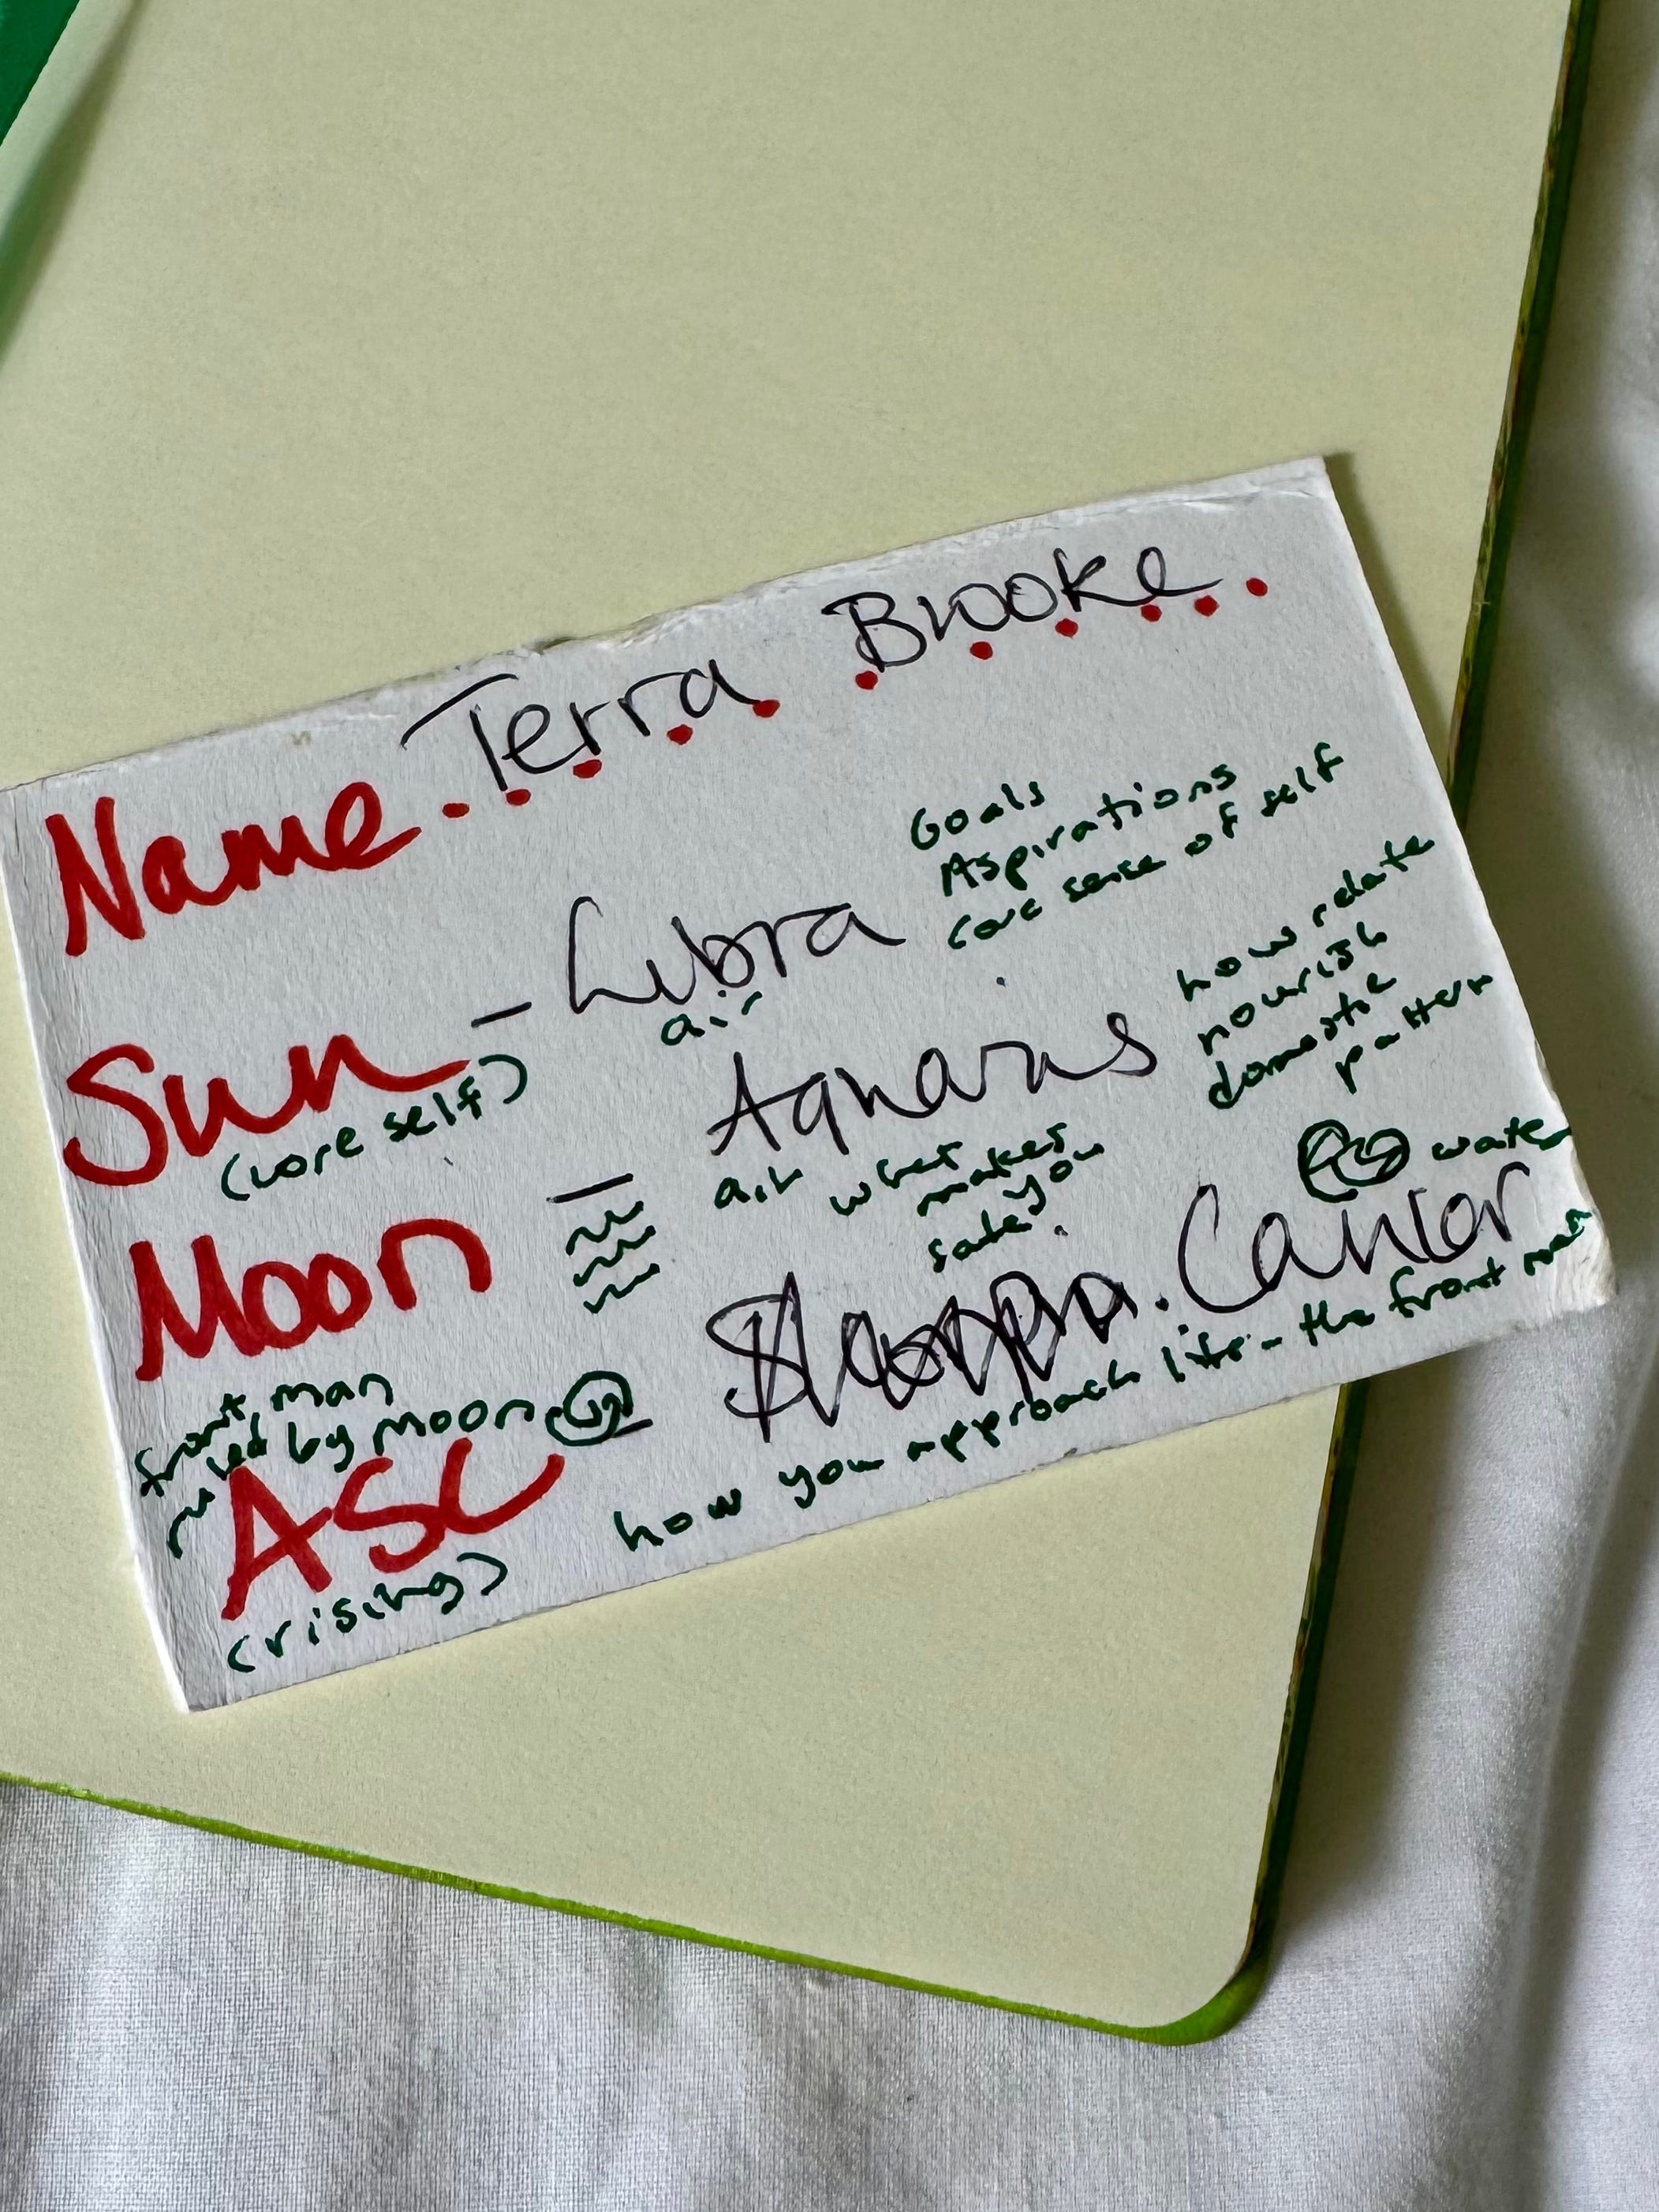 Name. Terra Brooke.
Goals
Aspirations
core sense of self
Sun - Libra
(core self)
air
how relate
nourish
domestic
pattern
Moon - Aquarus
air
what
makes
you
safe
water
front man
ruled by moon
ASC - Cancer
(rising)
how you approach life - the front man